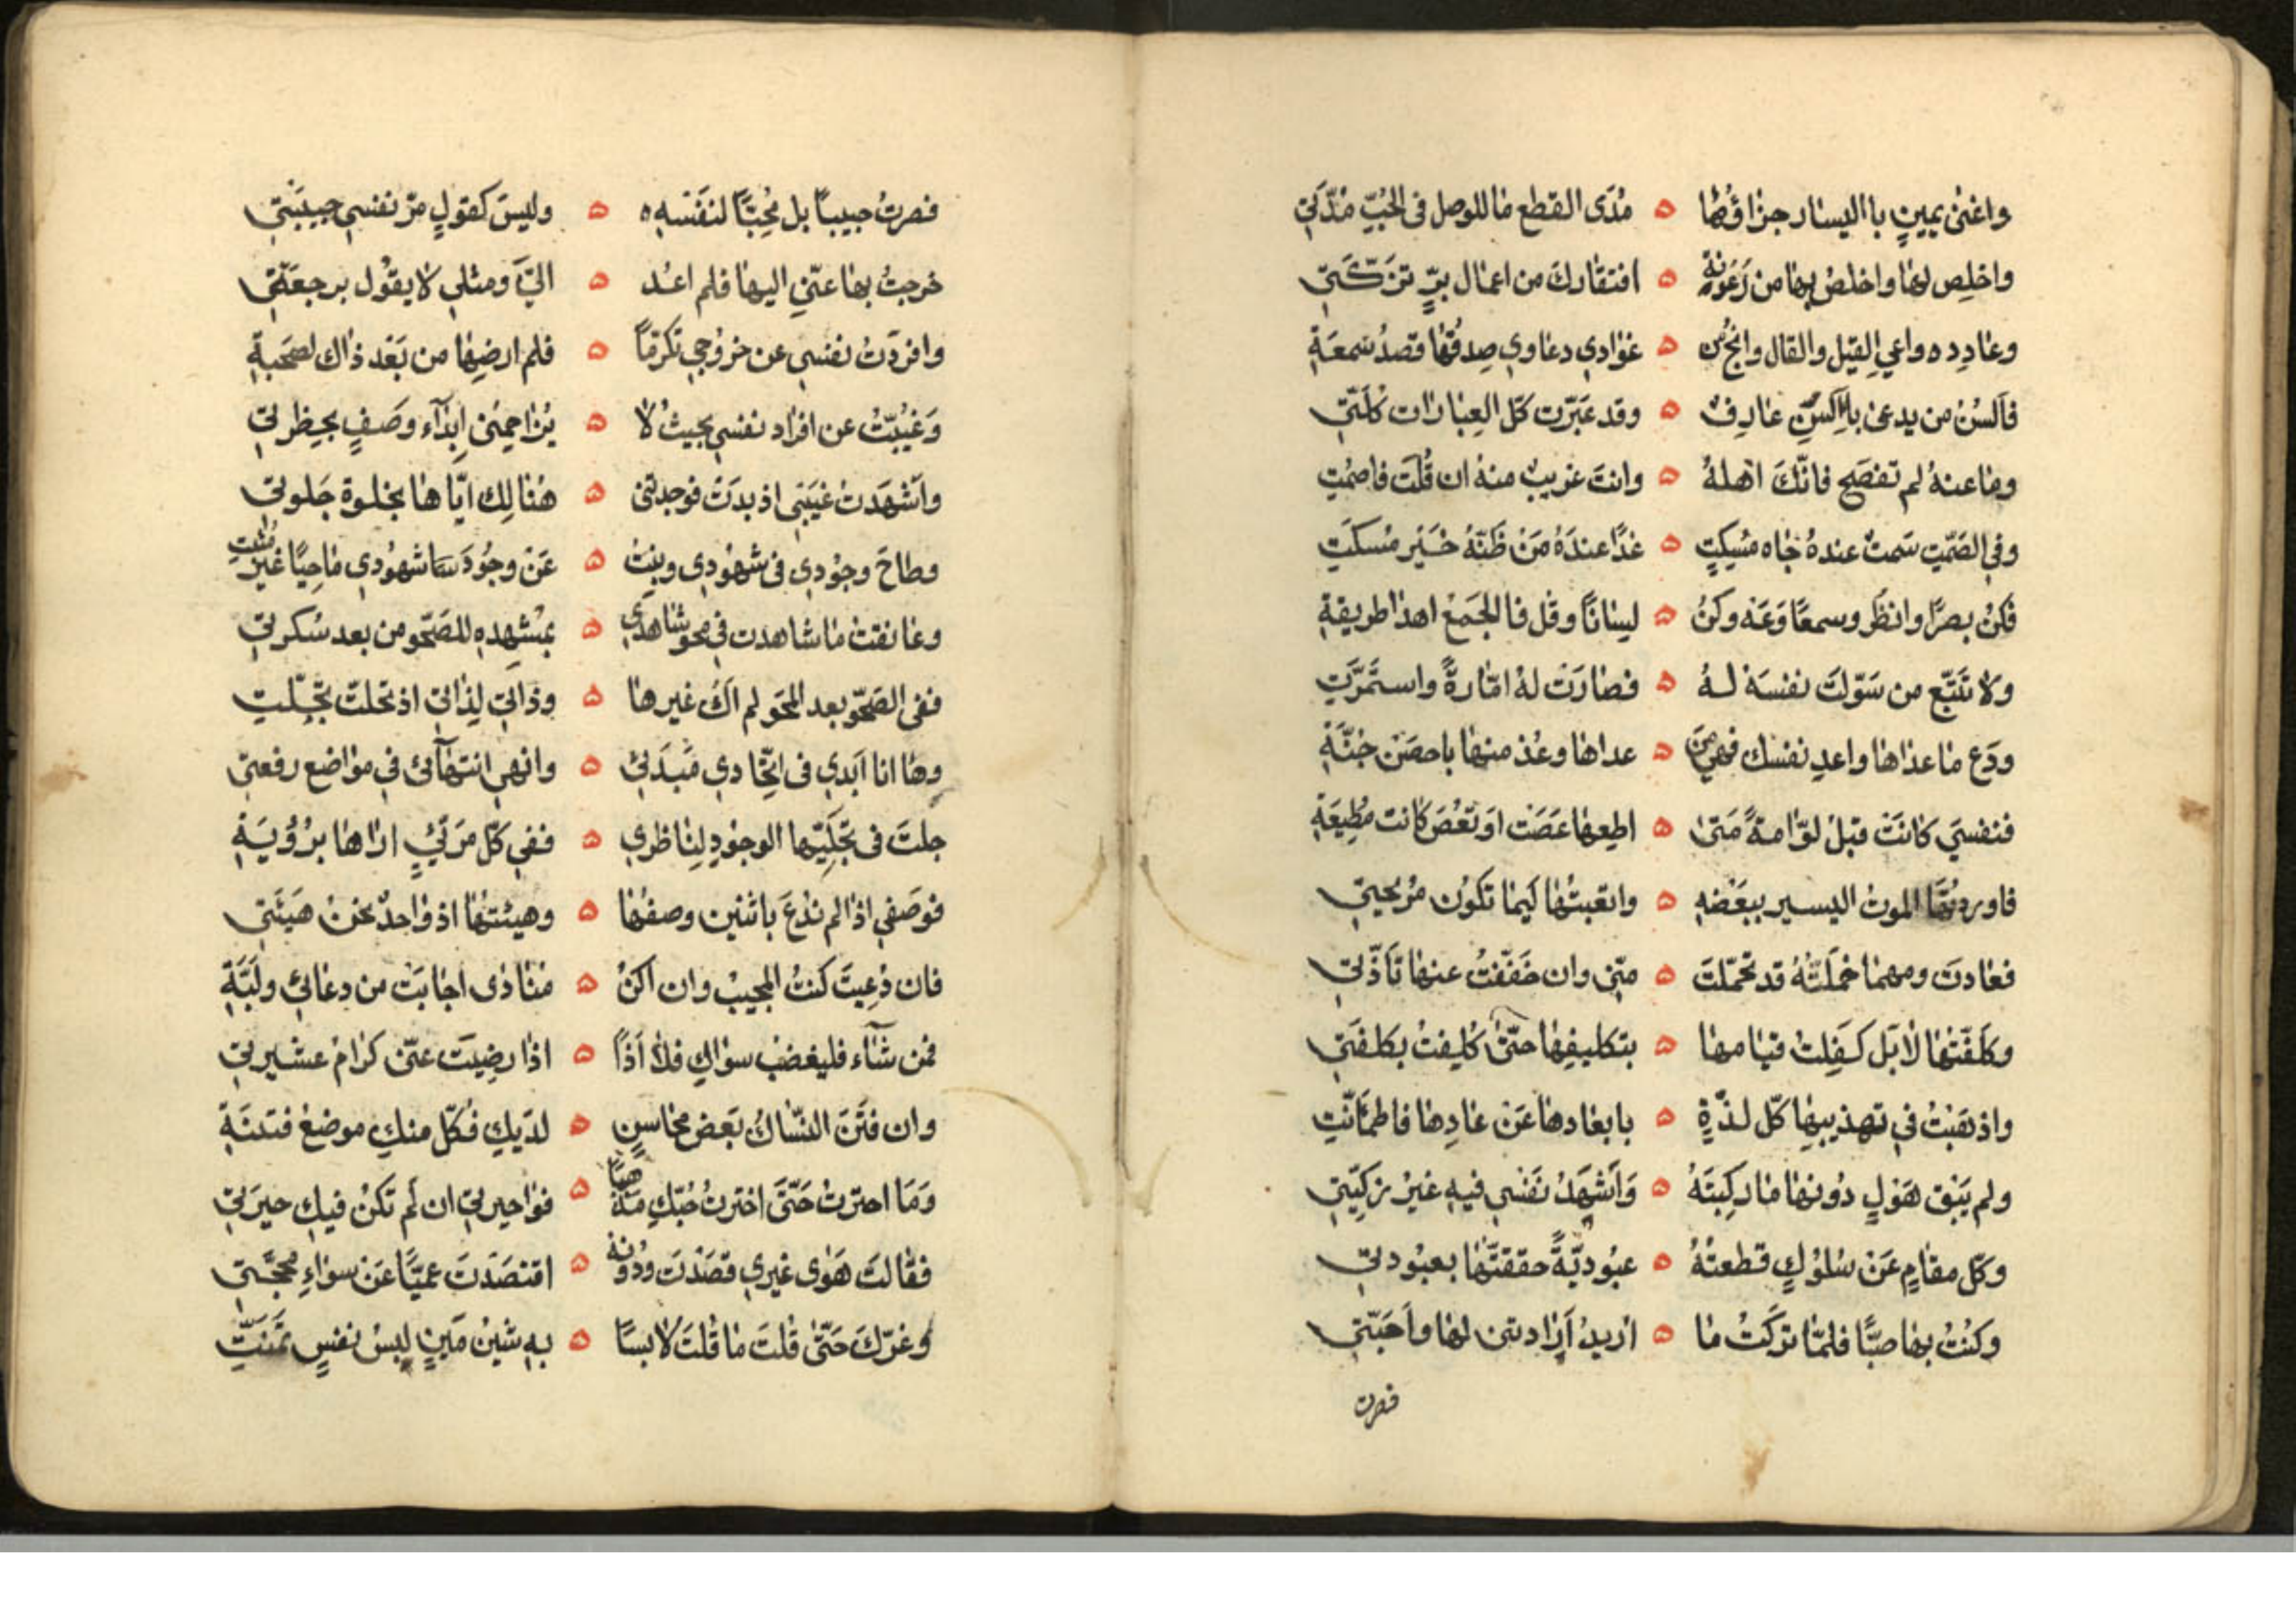 واغنى يمينٍ با اليسار جزاؤها ه مُدَى القطع ما للوصل في الحُبّ مُدّتي
واخلِص لها واخلصْ بها من رَعُونةِ ه افتقارك من اعمال بِرٍّ تزكّتي
وعادِ دواعي القيل والقال وانجُ من ه عوادي دعاوي صِدقُها قصدُ سُمعةِ
فالسُن من يدعى بالكسن عارف ه وقد عَبّرت كلّ العبارات كلّتي
وما عنهُ لم تفصح فانّكَ اهلهُ ه وانتَ غريبٌ منهُ ان قُلتَ فاصمُتِ
وفي الصَمْتِ سَمتٌ عندهُ جاه مسكتٍ ه غدًا عندَهُ مَن ظنّهُ خَير مُسكَتِ
فكن بصرًا وانظر وسمعًا وَعَه وكن ه لسانًا وقل فالجَمع اهدا طريقةِ
ولا تتّبع من سَوّلتَ نفسَهُ لهُ ه فصارَت لهُ امّارةً واستمرّتِ
ودَع ما عداها واعدِ نفسك فهي من ه عداها وعُذ منها باحصَن جُنّةِ
فنفسيَ كانَت قبلُ لوّامةً مَتى ه اطعها عَصَت او تعُصَ كانت مطيعَةِ
فاوردتُها الموتُ اليسير ببَعْضهِ ه واتعبتُها كيما تكون مُريحتي
فعادت ومهما حُمّلتْهُ قد تحمّلت ه منّي وان خَفّفتُ عنها تأذّتي
وكلّفتُها لا بَل كفِلتُ قيامها ه بتكليفها حتّى كُلِفتُ بكلفَتي
واذهَبتُ في تهذيبها كلّ لذّةٍ ه بابعادها عَن عادِها فاطمأنّتِ
ولم يَبق هَولٍ دُونها ما ركِبتَهُ ه وَاَشهَدُ نَفسي فيهِ غَيرُ زكِيّتي
وكلّ مقامٍ عَن سُلوُكٍ قطعتُهُ ه عبُوديّةً حققتُها بعبُودتي
وكنتُ بها صبًّا فلمّا تركتُ ما ه اريدُ اَرادتني لها واَحَبّتي
فصرت
فصرتُ حبيباً بل مُحِبًّا لنَفسهِ ه وليسَ كقولٍ مرّ نفسي حبيبَتي
خرجتُ بها عنّي اليها فلم اعُد ه اليَّ ومثلي لا يقُول برجعَتي
وافردَتُ نفسي عن خرُوجي تكرّمًا ه فلم ارضها من بَعْد ذاك لصُحبةِ
وَغُيّبتُ عن افراد نفسي بحيثُ لا ه يُزاحمني ابدآء وصَفٍ بحِظرتي
واَشهَدت غيبَتي اذ بدَت فوجدتني ه هُنالِك ايّاها بخلوة جَلوتي
وطاحَ وجُودي في شهُودي وبِنتُ ه عَن وجُودَ شهُودي ماحيًا غير مُثبتِ
وعانقتُ ما شاهدت في محو شاهدي ه بمشهدهِ للصَحو من بعد سُكرتي
ففى الصَحو بعد المَحو لم اكُ غيرها ه وذاتي لِذاتي اذ تحلت تجلّتِ
وها انا اَبدي في اتّحادي مَبدَئي ه وانهي انتهآئى في مواضع رفعتي
جلتَ في تجلّيها الوجُودِ لِناظري ه ففي كلّ مَرئيٍّ اراها برُؤيَةِ
فوَصَفي اذا لم نُدعَ باثنين وصفُها ه وهيئتُها اذ واحدٌ نحن هَيئَتي
فان دُعِيَت كنتُ المجيبُ وان اكن ه مُنادى اجابَت من دعاني ولَبّةِ
فمن شآء فليغضب سواكِ فلا اَذاً ه اذا رضِيَت عنّي كرامُ عشيرتي
وان فتَن النسّاك بَعَض محاسنٍ ه لدَيكِ فكلّ منكِ موضعُ فتنَةِ
وَمَا احترتُ حَتّى اخترتُ حُبّكِ مذهبًا ه فواحيرتي ان لم تكن فيكِ حيرَتي
فقالَت هَوَى غيري قصَدت ودُونهُ ه اقتصَدتَ عميًّا عَن سواءِ محجّتي
وغرّكَ حَتّى قلتَ ما قلتَ لابسًا ه بهِ شَين مَينٍ لبسُ نفسٍ تمنّتِ